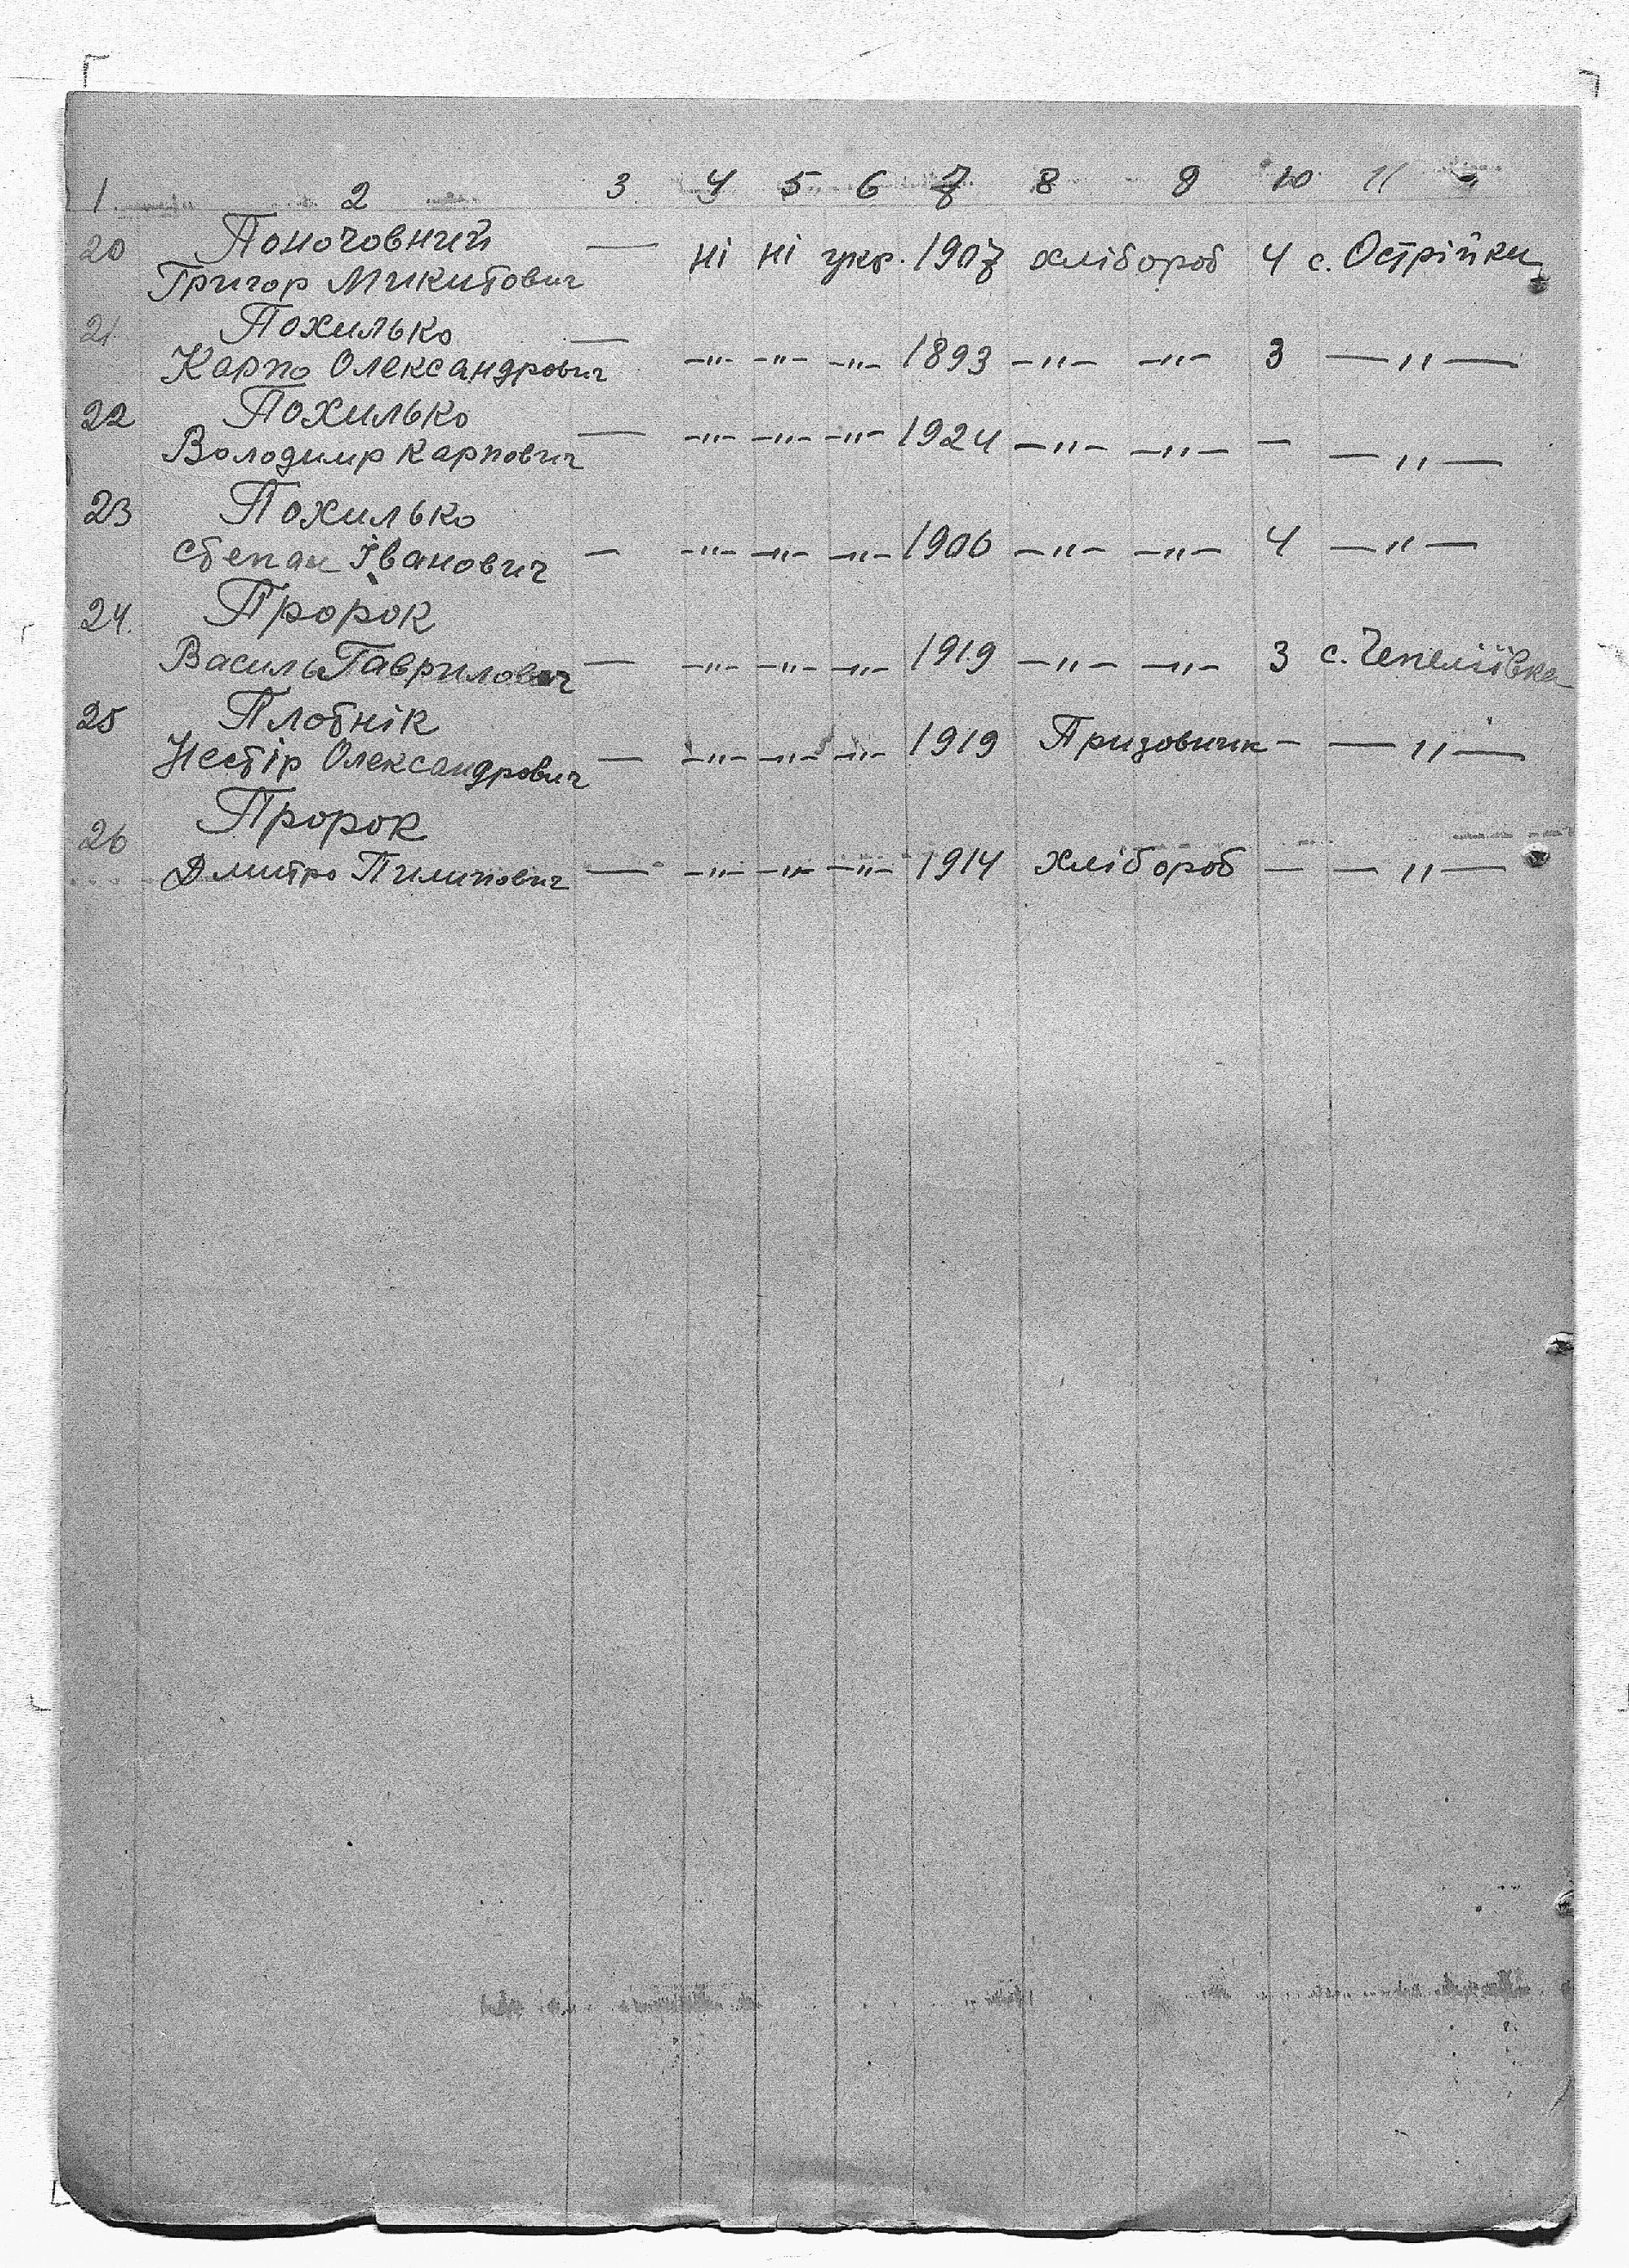 1. 2 3. 4 5 6 7 8 9 10 11
20 Поночовний
Григор Микитович — ні ні укр. 1907 хлібороб 4 с. Острійки
21. Похилько
Карпо Олександрович — —"— —"— —"— 1893 —"— —"— 3 —"—
22 Похилько
Володимир Карпович — —"— —"— —"— 1924 —"— —"— — —"—
23 Похилько
Степан Іванович — —"— —"— —"— 1906 —"— —"— 4 —"—
24. Пророк
Василь Гаврилович — —"— —"— —"— 1919 —"— —"— 3 с. Чепеліївка
25 Плотнік
Нестір Олександрович — —"— —"— —"— 1919 Призовник — —"—
26 Пророк
Дмитро Пилипович — —"— —"— —"— 1914 хлібороб — —"—